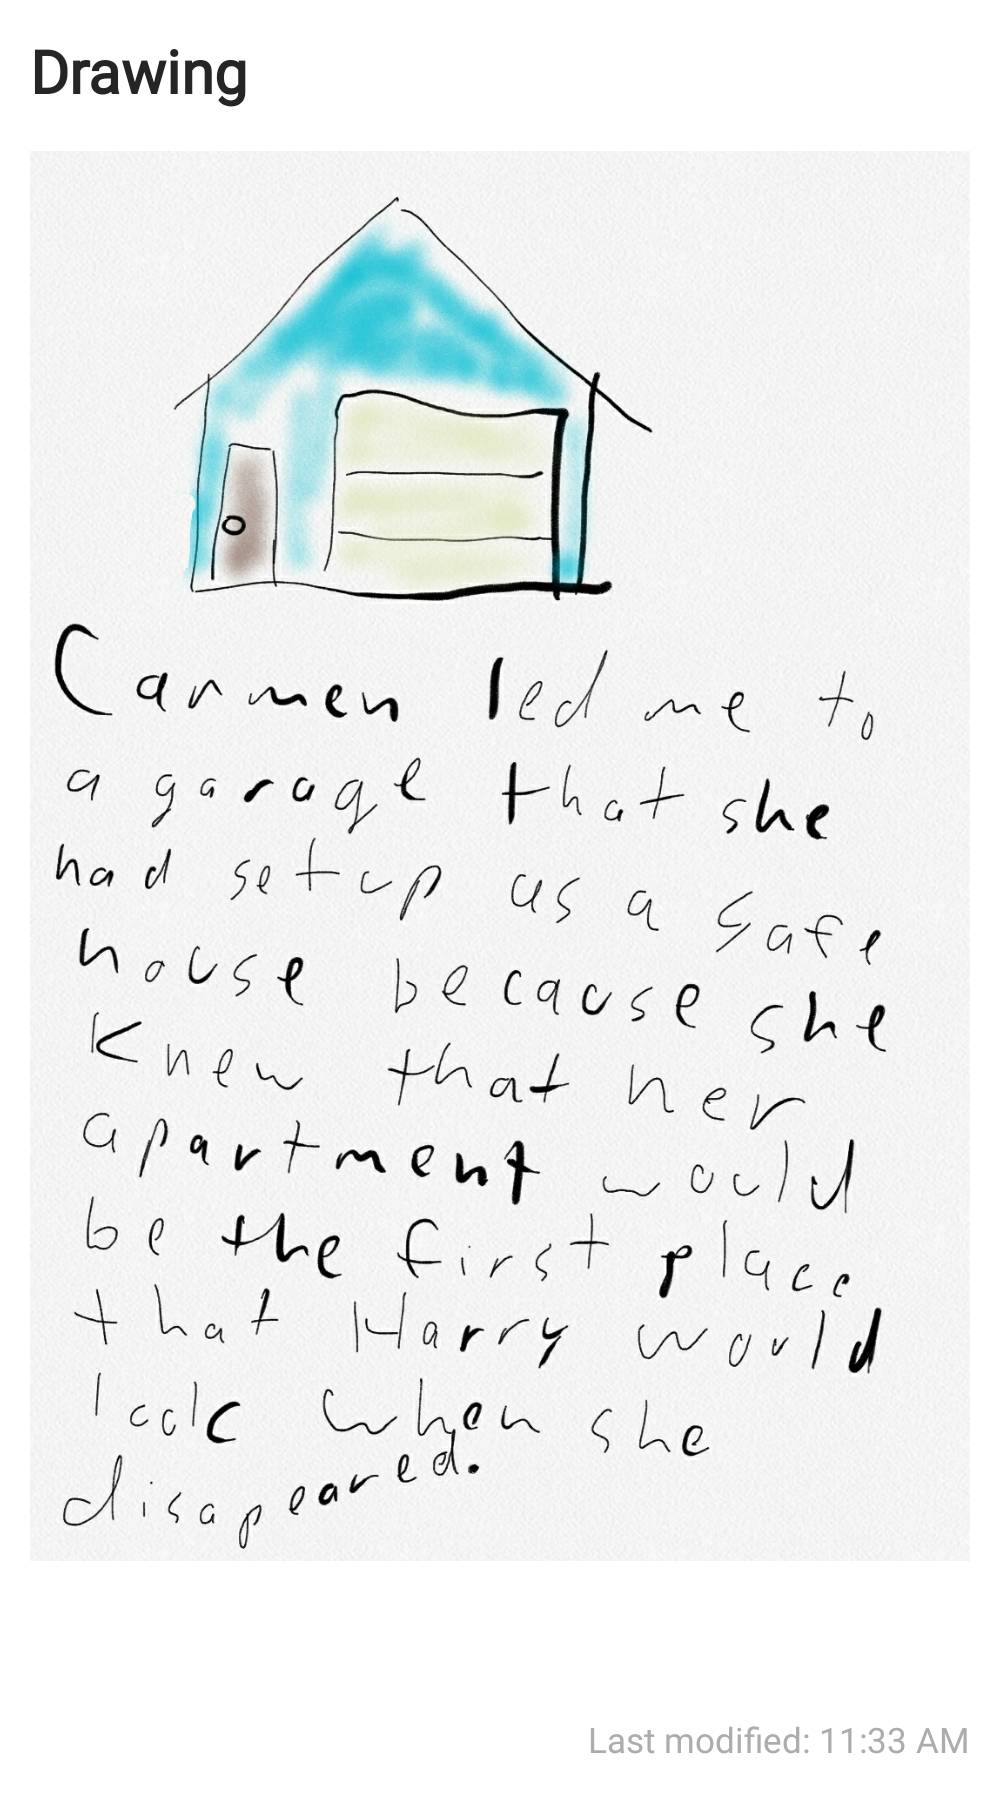 Drawing
Carmen led me to
a garage that she
had setup as a safe
house because she
knew that her
apartment would
be the first place
that Harry would
look when she
disapeared.
Last modified: 11:33 AM